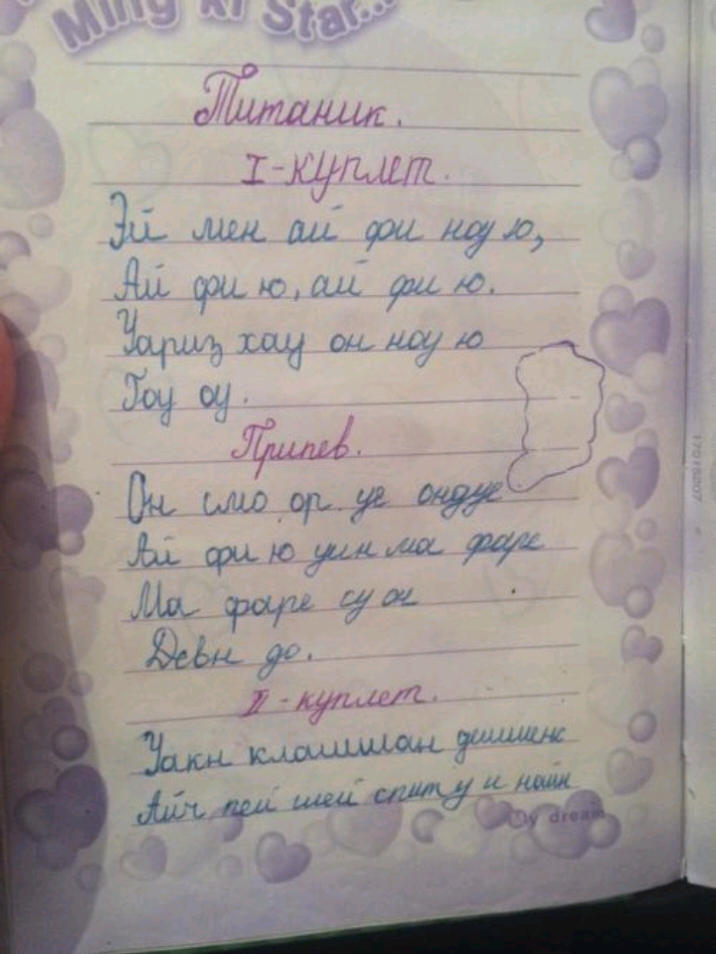 Ming ki Star...
Титаник.
I-куплет.
Эй мен ай фи ноу ю,
Ай фи ю, ай фи ю.
Уариз хау он ноу ю
Гоу оу.
Припев.
Он смо ор уе ондуе
Ай фи ю уин ма фаре
Ма фаре су он
Девн до.
II-куплет.
Уакн клашшан
Айч пей шей спит у и найн
My dream
17015207